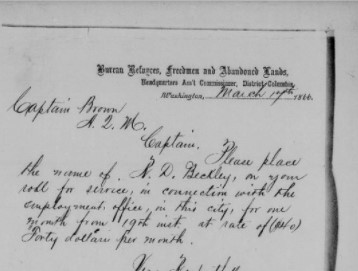 Bureau Refugees, Freedmen and Abandoned Lands,
Headquarters Ass't Commissioner, District Columbia
Washington, March 17th 1866.
Captain Brown
A. Q. M.
Captain. Please place
the name of N. D. Beckley, on your
roll for service, in connection with the
employment office, in this city, for one
month from 19th inst. at rate of ($40)
Forty dollars per month.